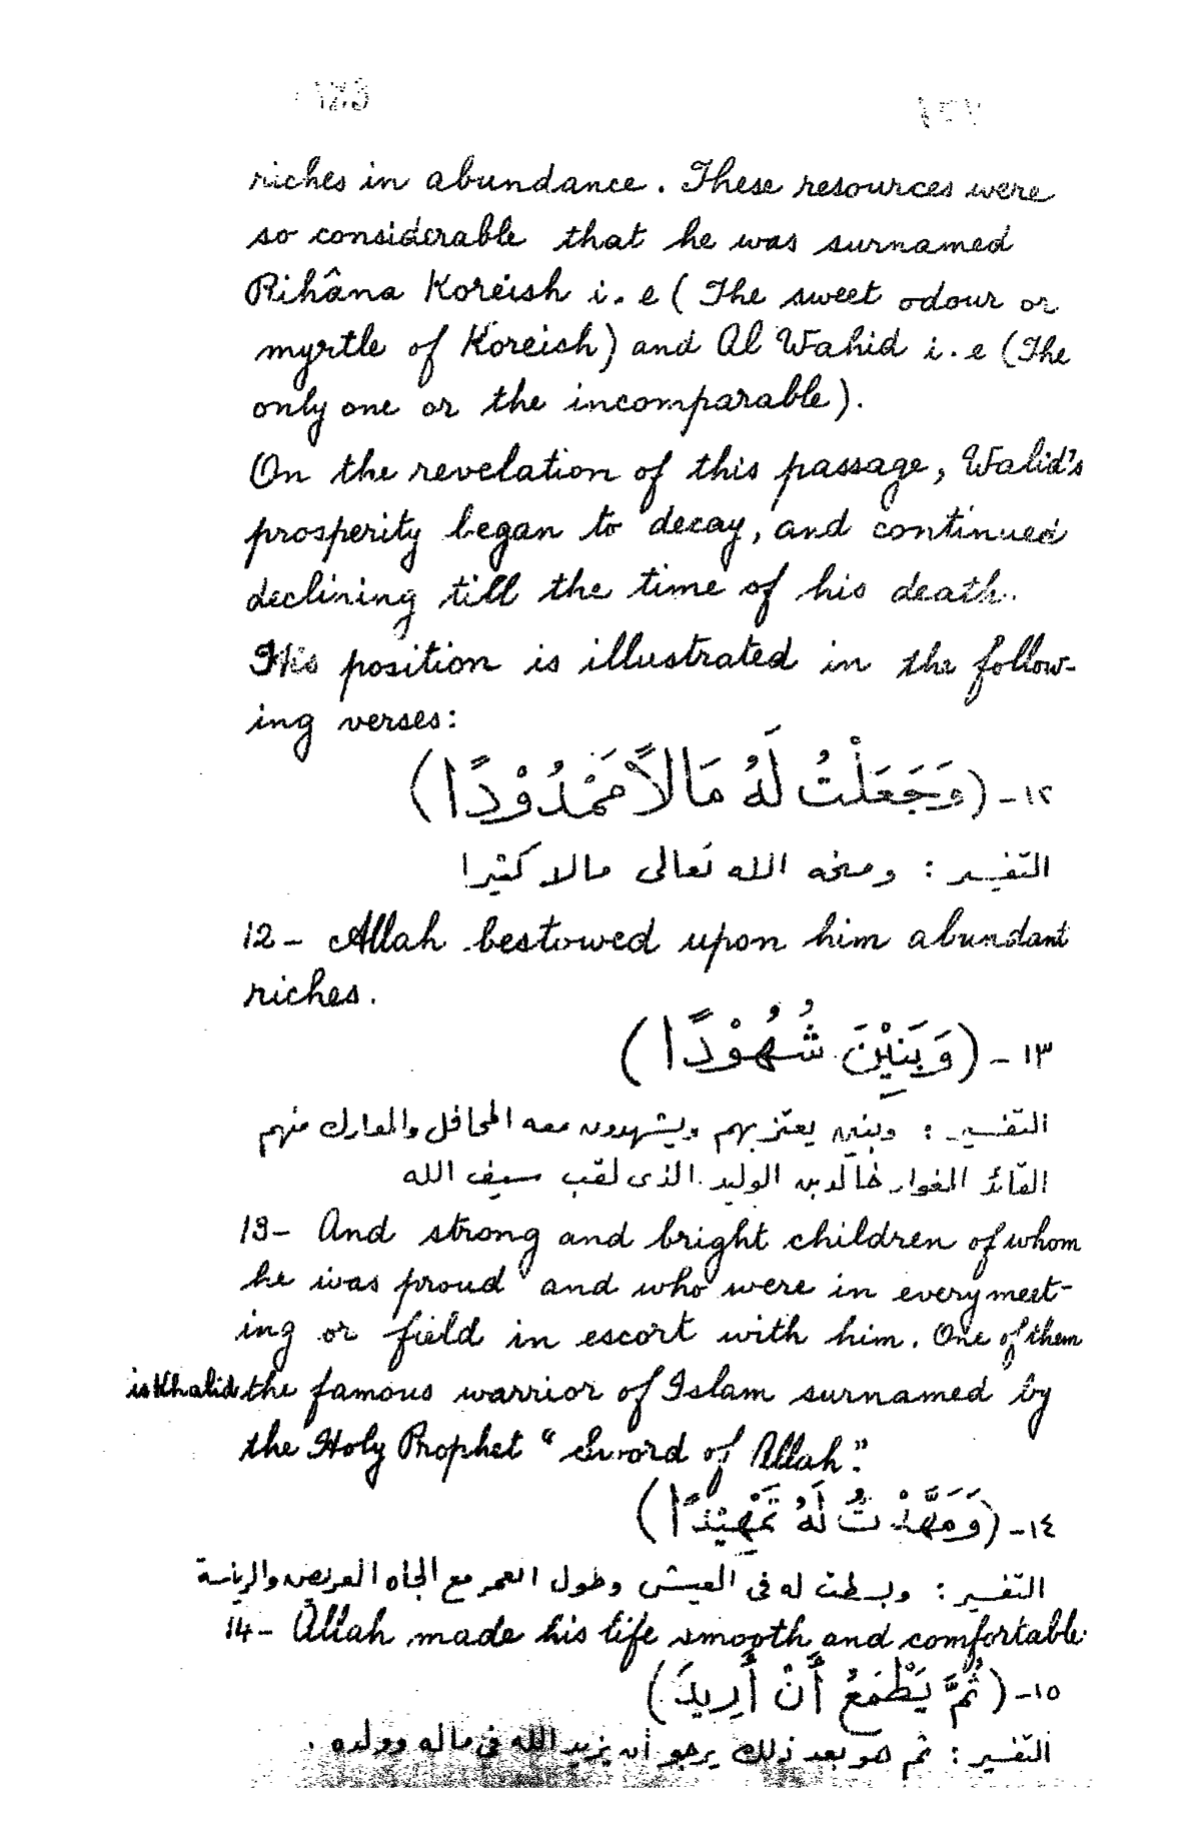 riches in abundance. These resources were
so considerable that he was surnamed
Rihâna Koreish i.e (The sweet odour or
myrtle of Koreish) and Al Wahid i.e (The
only one or the incomparable).
On the revelation of this passage, Walid's
prosperity began to decay, and continued
declining till the time of his death.
His position is illustrated in the follow-
ing verses:
١٢- (وَجَعَلْتُ لَهُ مَالاً مَمْدُوْدًا)
التفسير : ومنحه الله تعالى مالا كثيرا
12- Allah bestowed upon him abundant
riches.
١٣- (وَبَنِيْنَ شُهُوْدًا)
التفسير : وبنين يعتز بهم ويشهدون معه المحافل والمعارك منهم
القائد المغوار خالد بن الوليد الذى لقب سيف الله
13- And strong and bright children of whom
he was proud and who were in every meet-
ing or field in escort with him. One of them
is Khalid the famous warrior of Islam surnamed by
the Holy Prophet "Sword of Allah".
١٤- (وَمَهَّدْتُ لَهُ تَمْهِيْدًا)
التفسير : وبسطت له فى العيش وطول العمر مع الجاه العريض والرياسة
14- Allah made his life smooth and comfortable.
١٥- (ثُمَّ يَطْمَعُ أَنْ أَزِيدَ)
التفسير : ثم هو بعد ذلك يرجو أن يزيد الله فى ماله وولده .